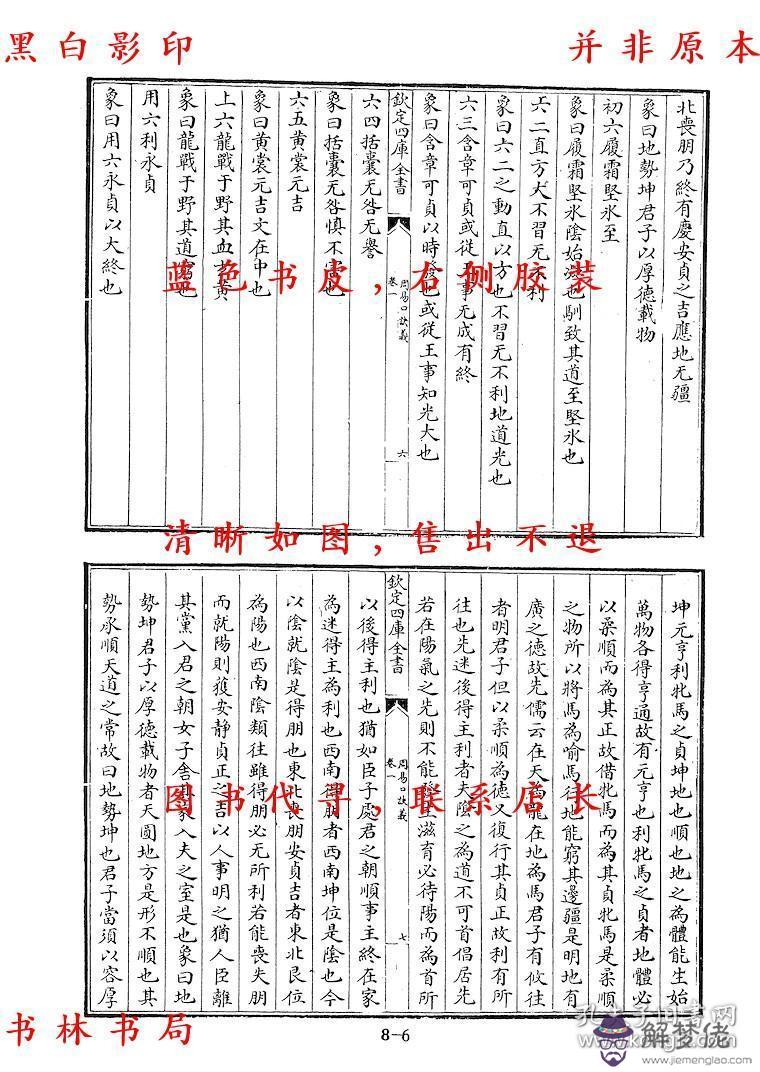 黑白影印
并非原本
北喪朋乃終有慶安貞之吉應地无疆
象曰地勢坤君子以厚德載物
初六履霜堅氷至
象曰履霜堅氷陰始也馴致其道至堅氷也
六二直方大不習无不利
象曰六二之動直以方也不習无不利地道光也
六三含章可貞或從事无成有終
象曰含章可貞以時也或從王事知光大也
欽定四庫全書
周易口訣義
卷一
六
六四括囊无咎无譽
象曰括囊无咎慎不也
六五黃裳元吉
象曰黃裳元吉文在中也
上六龍戰于野其血黃
象曰龍戰于野其道也
用六利永貞
象曰用六永貞以大終也
蓝色书皮，右侧胶装
清晰如图，售出不退
坤元亨利牝馬之貞坤地也順也地之為體能生始
萬物各得亨通故有元亨也利牝馬之貞者地體必
以柔順而為其正故借牝馬而為其貞牝馬是柔順
之物所以將馬為喻馬往地能窮其邊疆是明地有
廣之德故先儒云在天為龍在地為馬君子有攸往
者明君子但以柔順為德又復行其貞正故利有所
往也先迷後得主利者夫陰之為道不可首倡居先
若在陽氣之先則不能滋育必待陽而為首所
欽定四庫全書
周易口訣義
卷一
七
以後得主利也猶如臣子處君之朝順事主終在家
為迷得主為利也西南得朋者西南坤位是陰也今
以陰就陰是得朋也東北喪朋安貞吉者東北艮位
為陽也西南陰類往雖得朋必无所利若能喪失朋
而就陽則獲安靜貞正之吉以人事明之猶人臣離
其黨入君之朝女子舍其家入夫之室是也象曰地
勢坤君子以厚德載物者天圓地方是形不順也其
勢承順天道之常故曰地勢坤也君子當須以容厚
图书代寻，联系店长
书林书局
8-6
孔夫子旧书网
解梦佬
www.jiemenglao.com